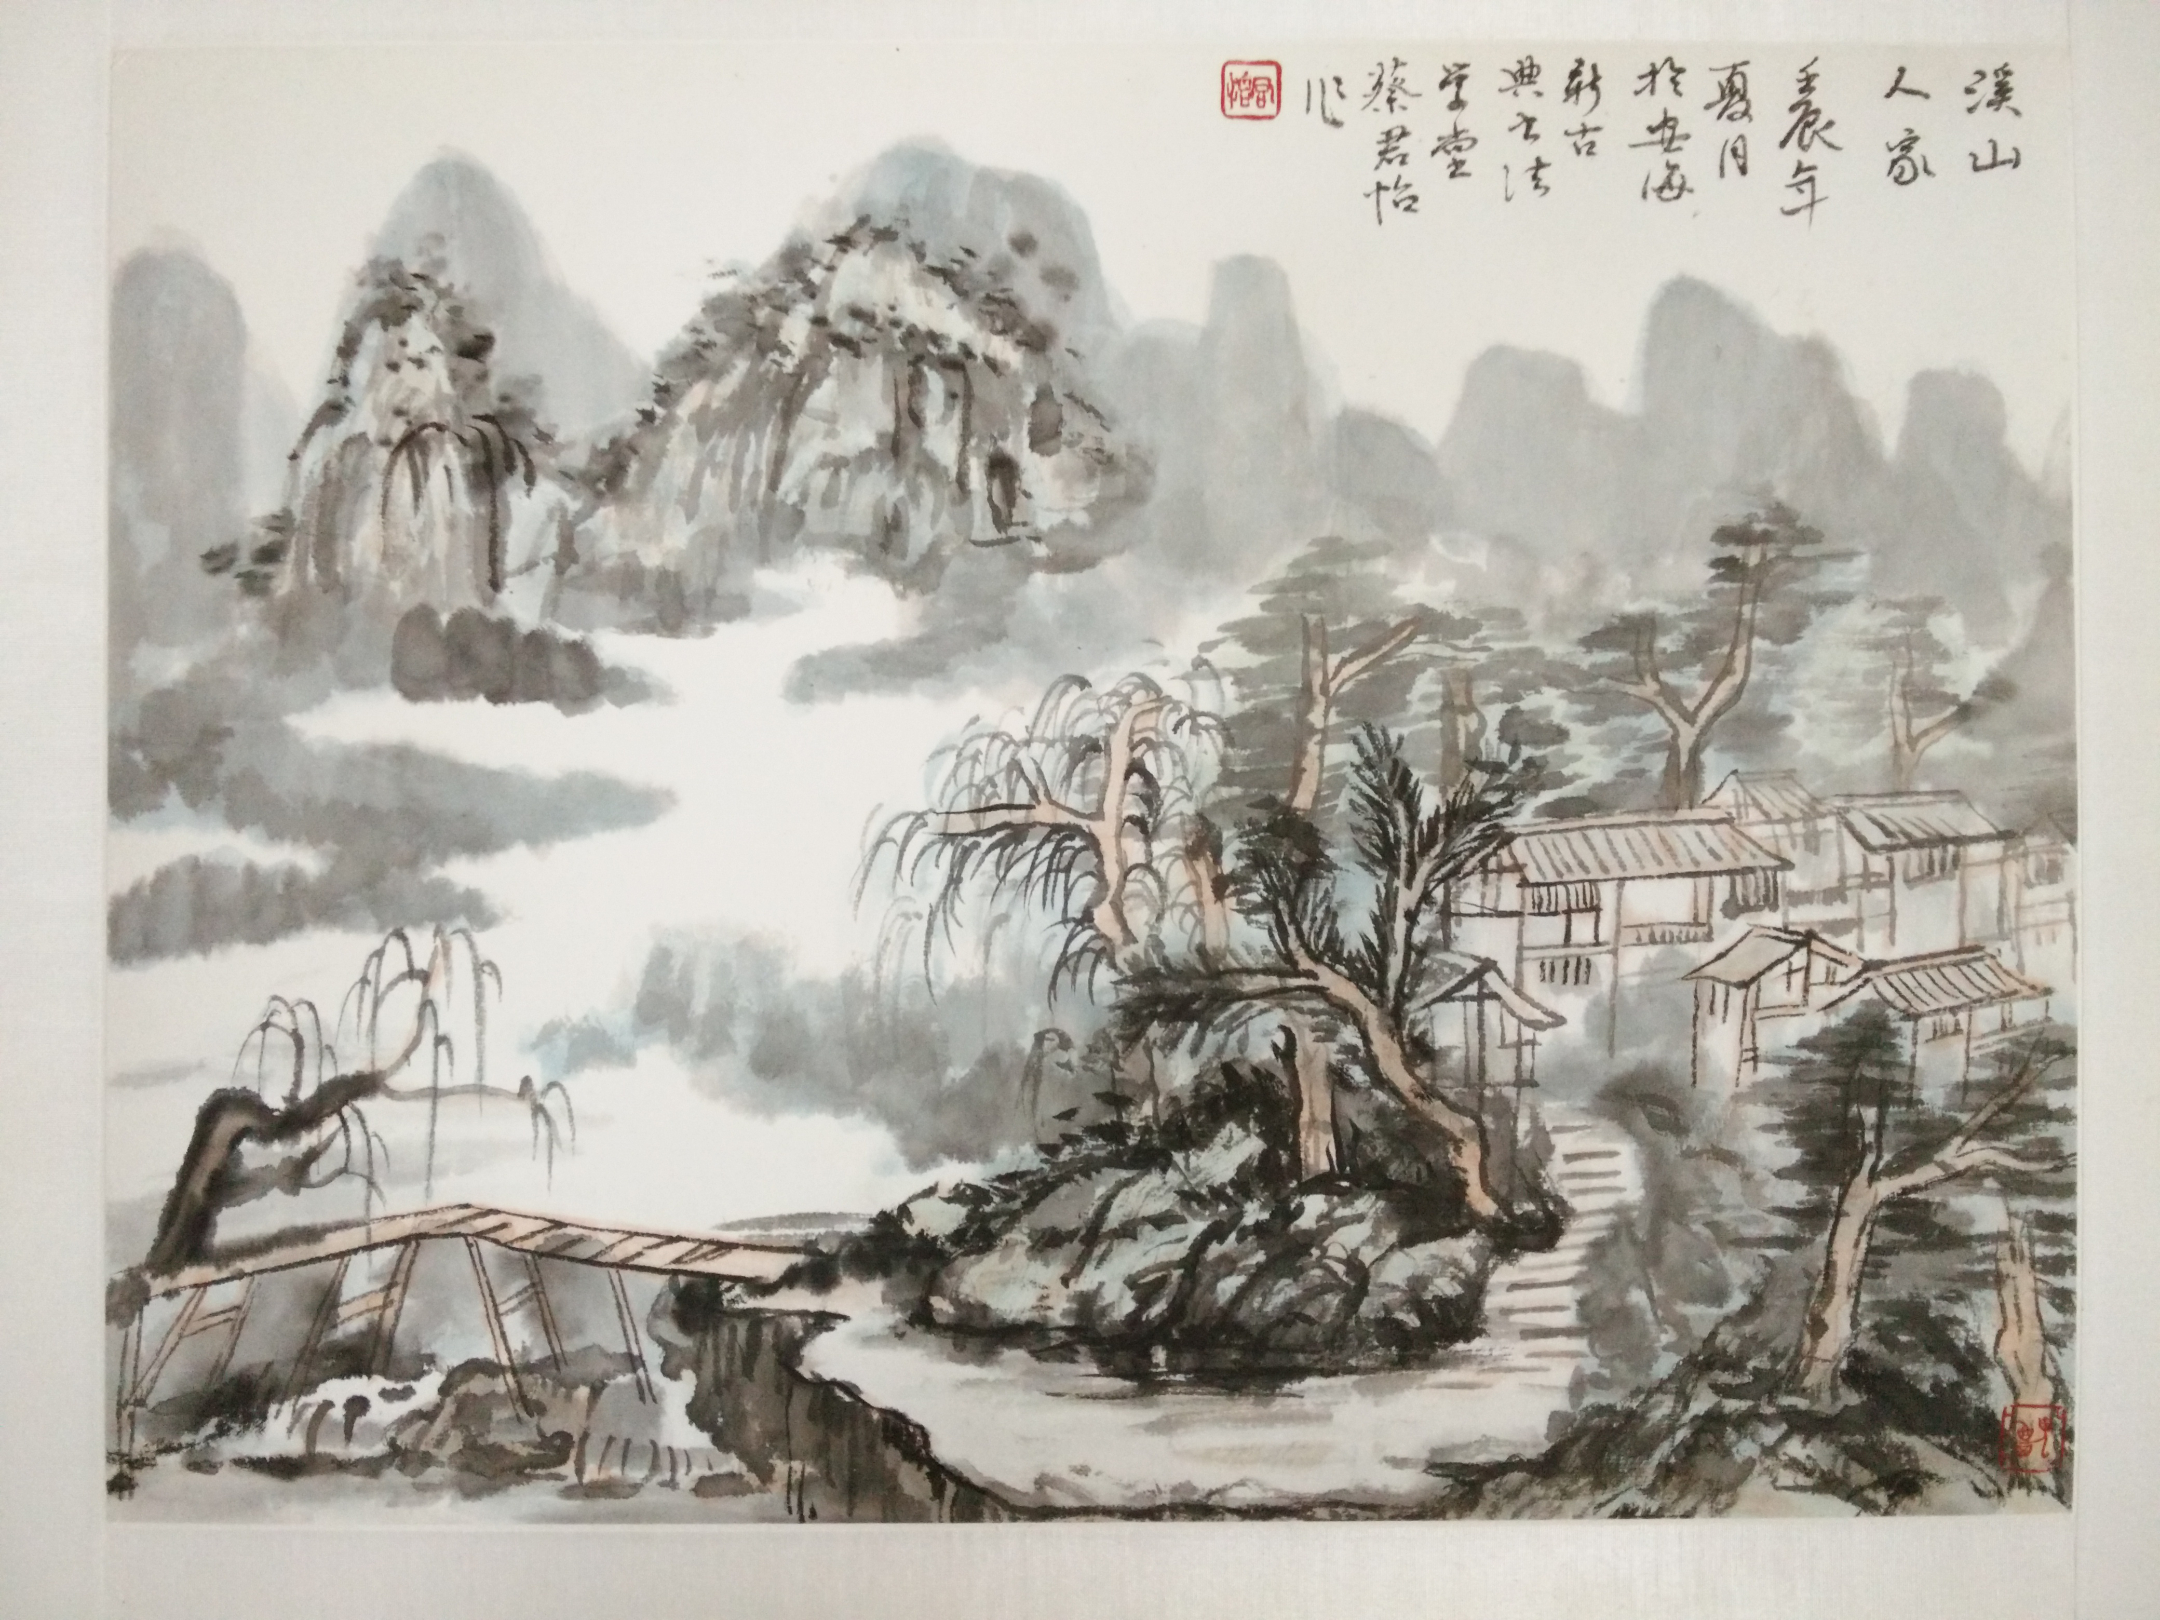 溪山
人家
壬辰年
夏月
於安海
新古
典书法
学堂
蔡君怡
作
君怡